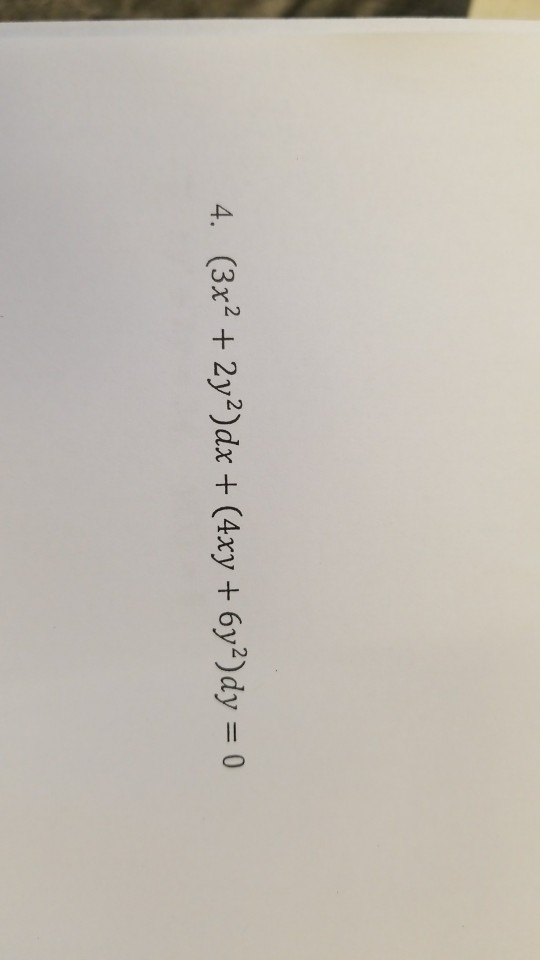 4. (3x² + 2y²)dx + (4xy + 6y²)dy = 0